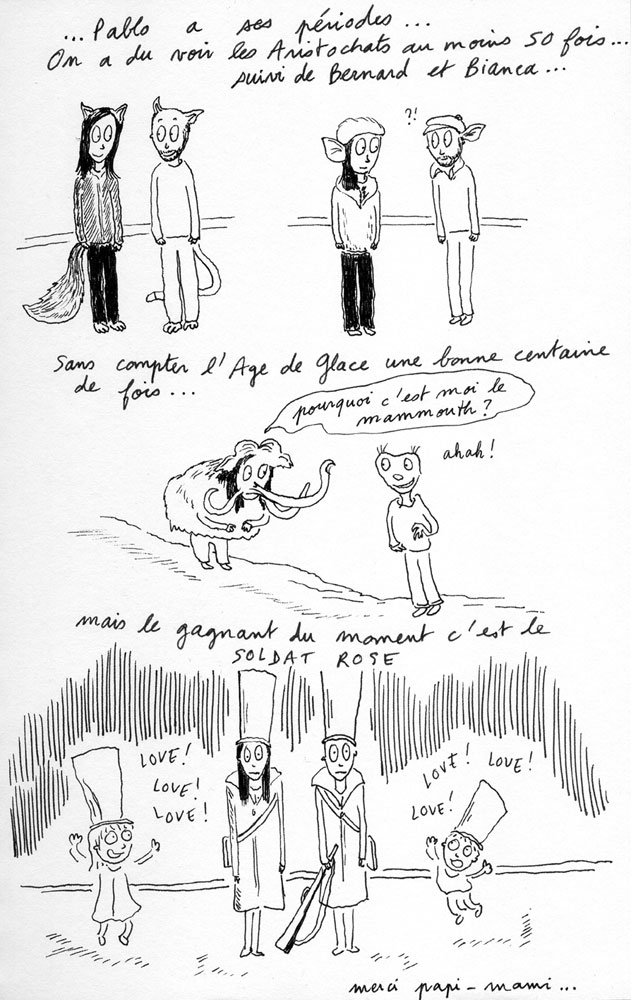 ...Pablo a ses périodes...
On a du voir les Aristochats au moins 50 fois...
suivi de Bernard et Bianca...
?!
Sans compter l'Age de Glace une bonne centaine
de fois...
pourquoi c'est moi le
mammouth?
ahah!
mais le gagnant du moment c'est le
SOLDAT ROSE
LOVE!
LOVE!
LOVE!
LOVE!
LOVE!
LOVE!
merci papi-mami...